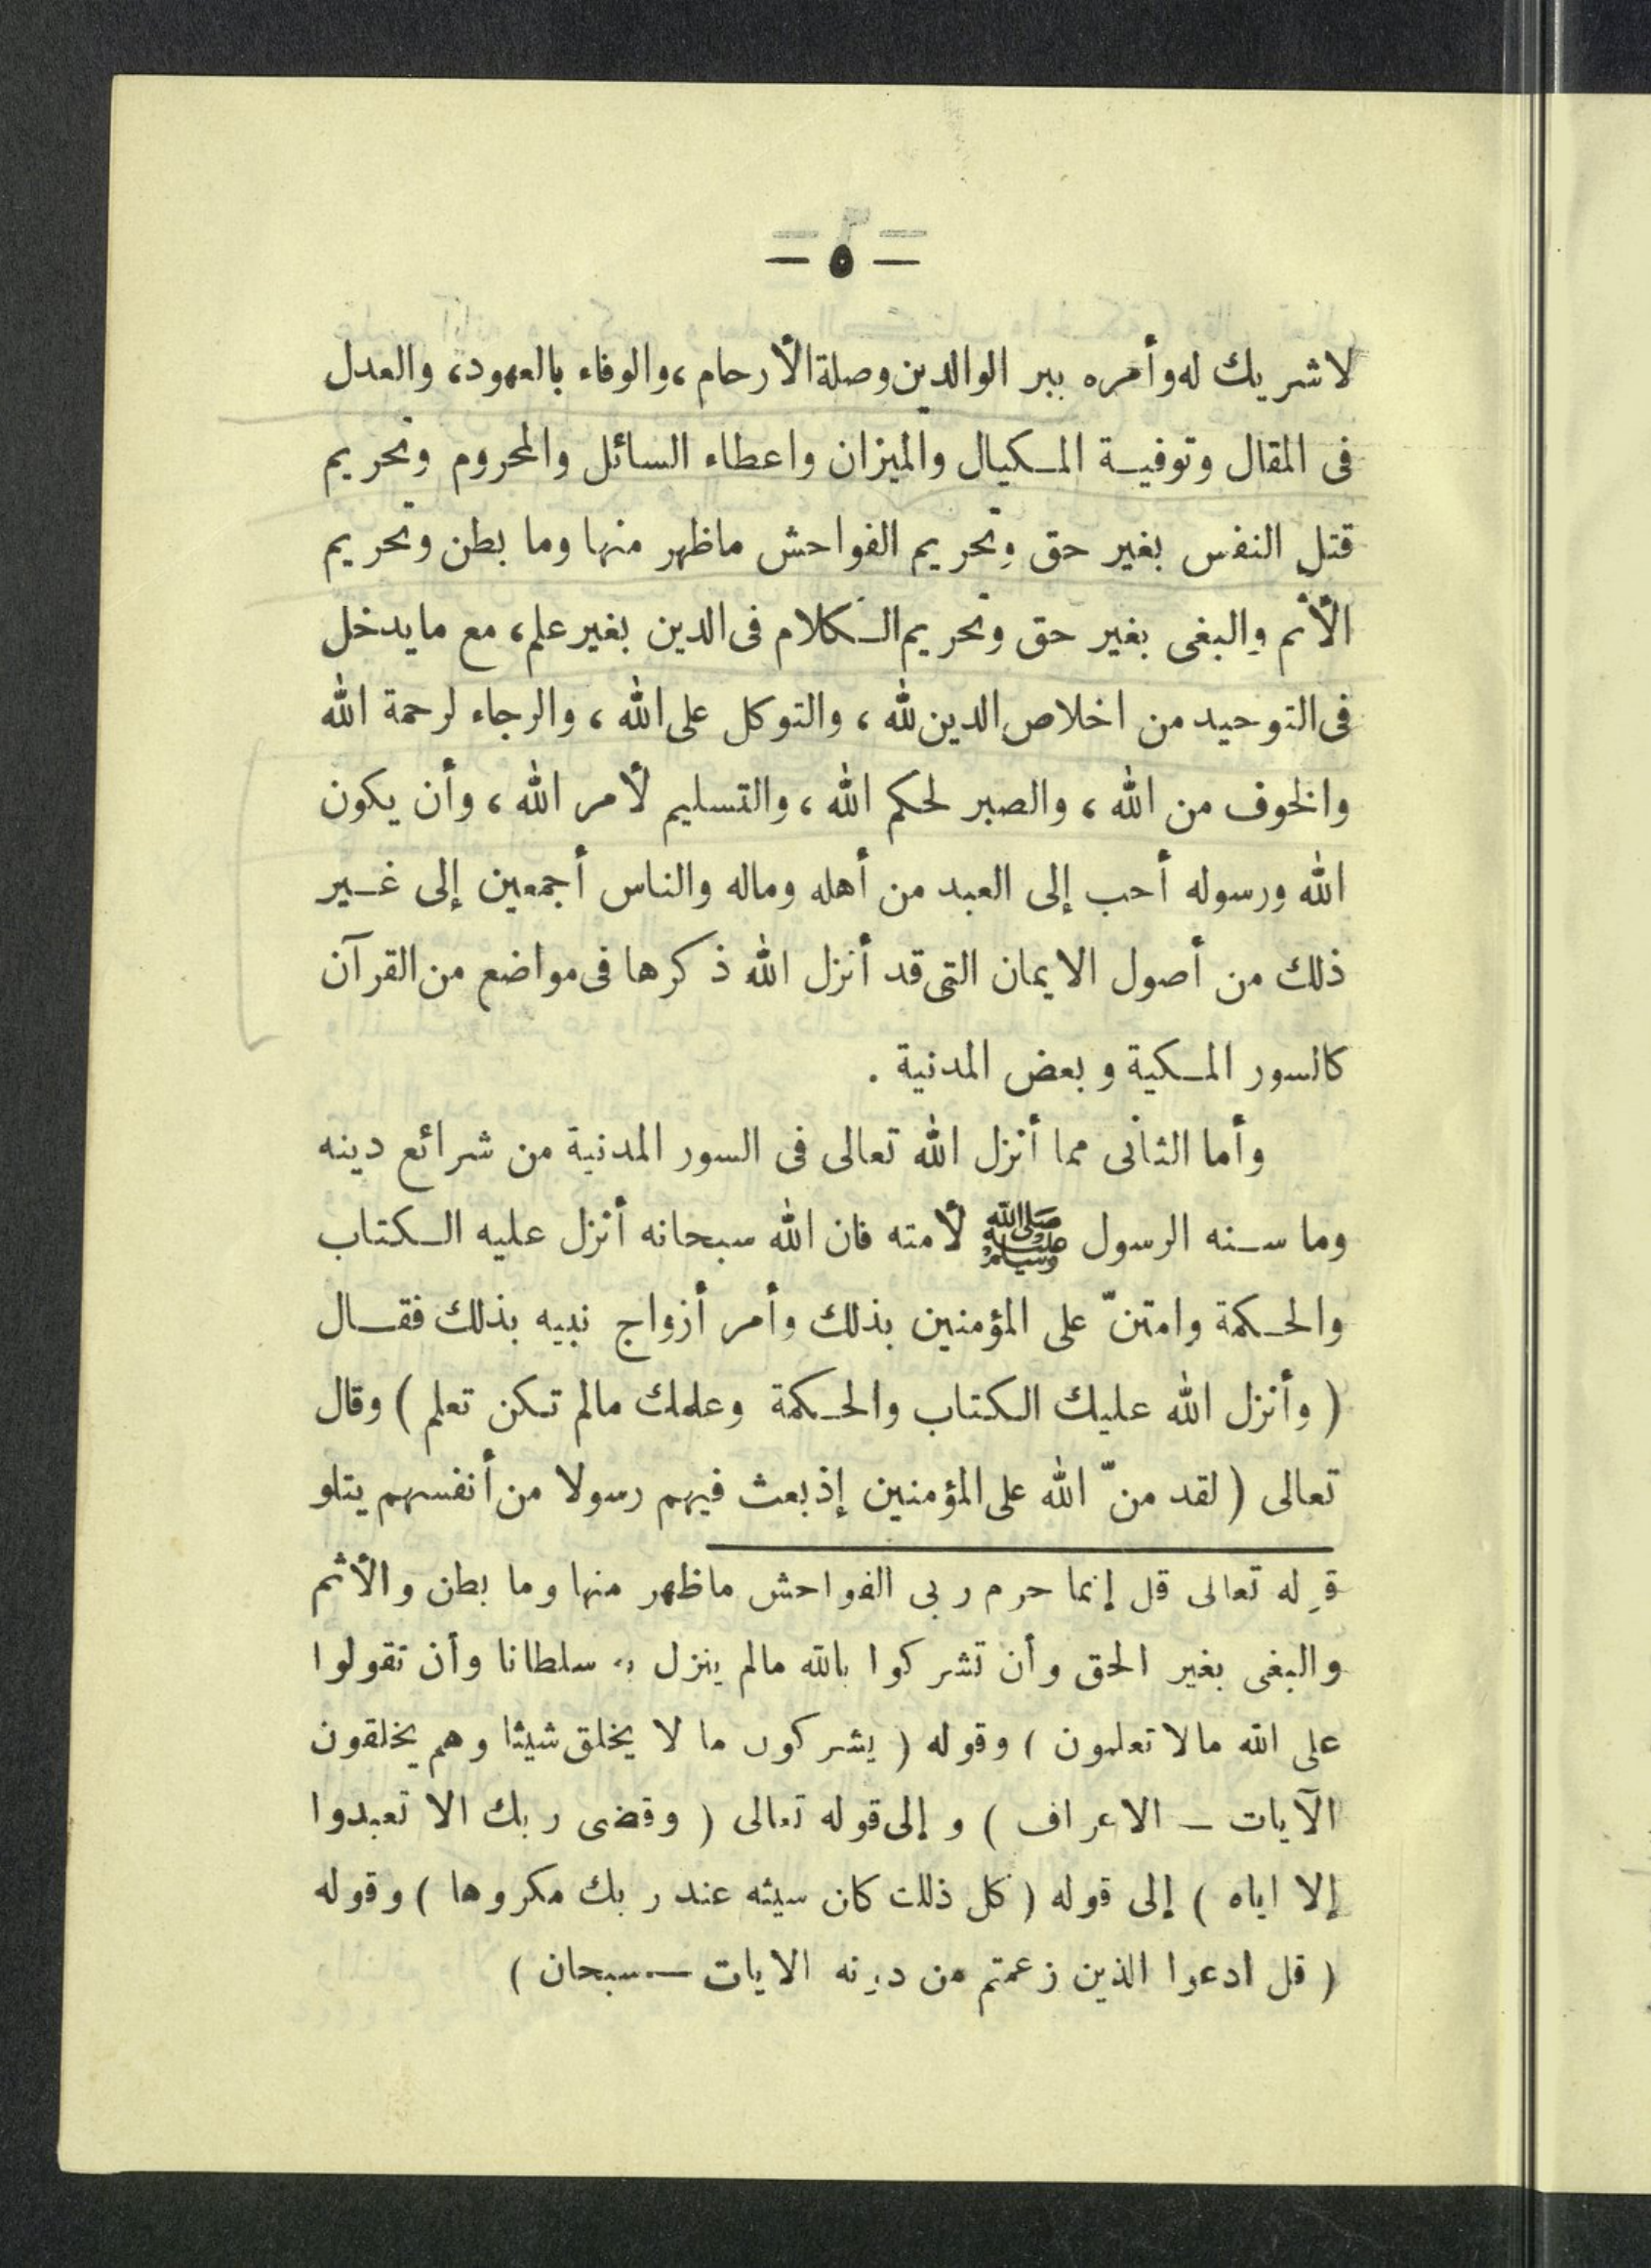 — ٥ —
لاشريك له وأمره ببر الوالدين وصلة الأرحام، والوفاء بالعهود، والعدل
فى المقال وتوفيـة المـكيال والميزان واعطاء السائل والمحروم وتحريم
قتل النفس بغير حق وتحريم الفواحش ماظهر منها وما بطن وتحريم
الأثم والبغى بغير حق وتحريم الـكلام فى الدين بغير علم، مع مايدخل
فى التوحيد من اخلاص الدين لله ، والتوكل على الله ، والرجاء لرحمة الله
والخوف من الله ، والصبر لحكم الله ، والتسليم لأمر الله ، وأن يكون
الله ورسوله أحب إلى العبد من أهله وماله والناس أجمعين إلى غـير
ذلك من أصول الايمان التى قد أنزل الله ذكرها فى مواضع من القرآن
كالسور المـكية و بعض المدنية .
وأما الثانى مما أنزل الله تعالى فى السور المدنية من شرائع دينه
وما سـنه الرسول ﷺ لأمته فان الله سبحانه أنزل عليه الـكتاب
والحـكمة وامتنّ على المؤمنين بذلك وأمر أزواج نبيه بذلك فقـال
( وأنزل الله عليك الـكتاب والحـكمة وعلمك مالم تـكن تعلم ) وقال
تعالى ( لقد منّ الله على المؤمنين إذ بعث فيهم رسولا من أنفسهم يتلو
قوله تعالى قل إنما حرم ربى الفواحش ماظهر منها وما بطن والأثم
والبغى بغير الحق وأن تشركوا بالله مالم ينزل به سلطانا وأن تقولوا
على الله مالا تعلمون ) وقوله ( يشركون ما لا يخلق شيئا وهم يخلقون
الآيات — الاعراف ) و إلى قوله تعالى ( وقضى ربك الا تعبدوا
إلا اياه ) إلى قوله ( كل ذلك كان سيئه عند ربك مكروها ) وقوله
( قل ادعوا الذين زعمتم من دونه الايات — سبحان )